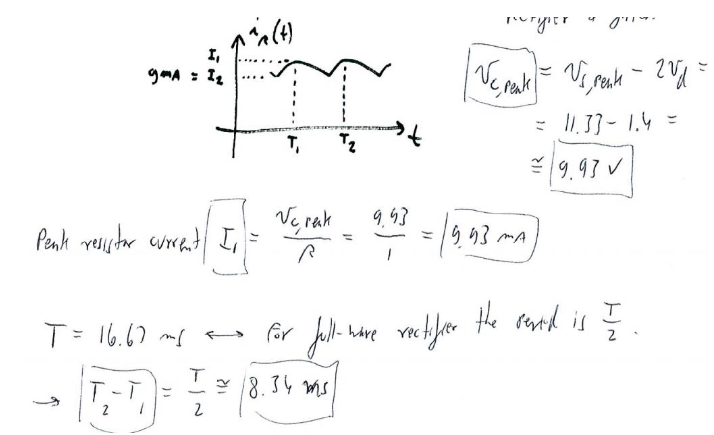 i_R(t)
I₁
9mA = I₂
T₁ T₂ t
V_{c,peak} = V_{s,peak} - 2V_d =
= 11.33 - 1.4 =
≅ 9.93 V
Peak resistor current I₁ = V_{c,peak} / R = 9.93 / 1 = 9.93 mA
T = 16.67 ms ↔ for full-wave rectifier the period is T/2.
→ T₂-T₁ = T/2 ≅ 8.34 ms